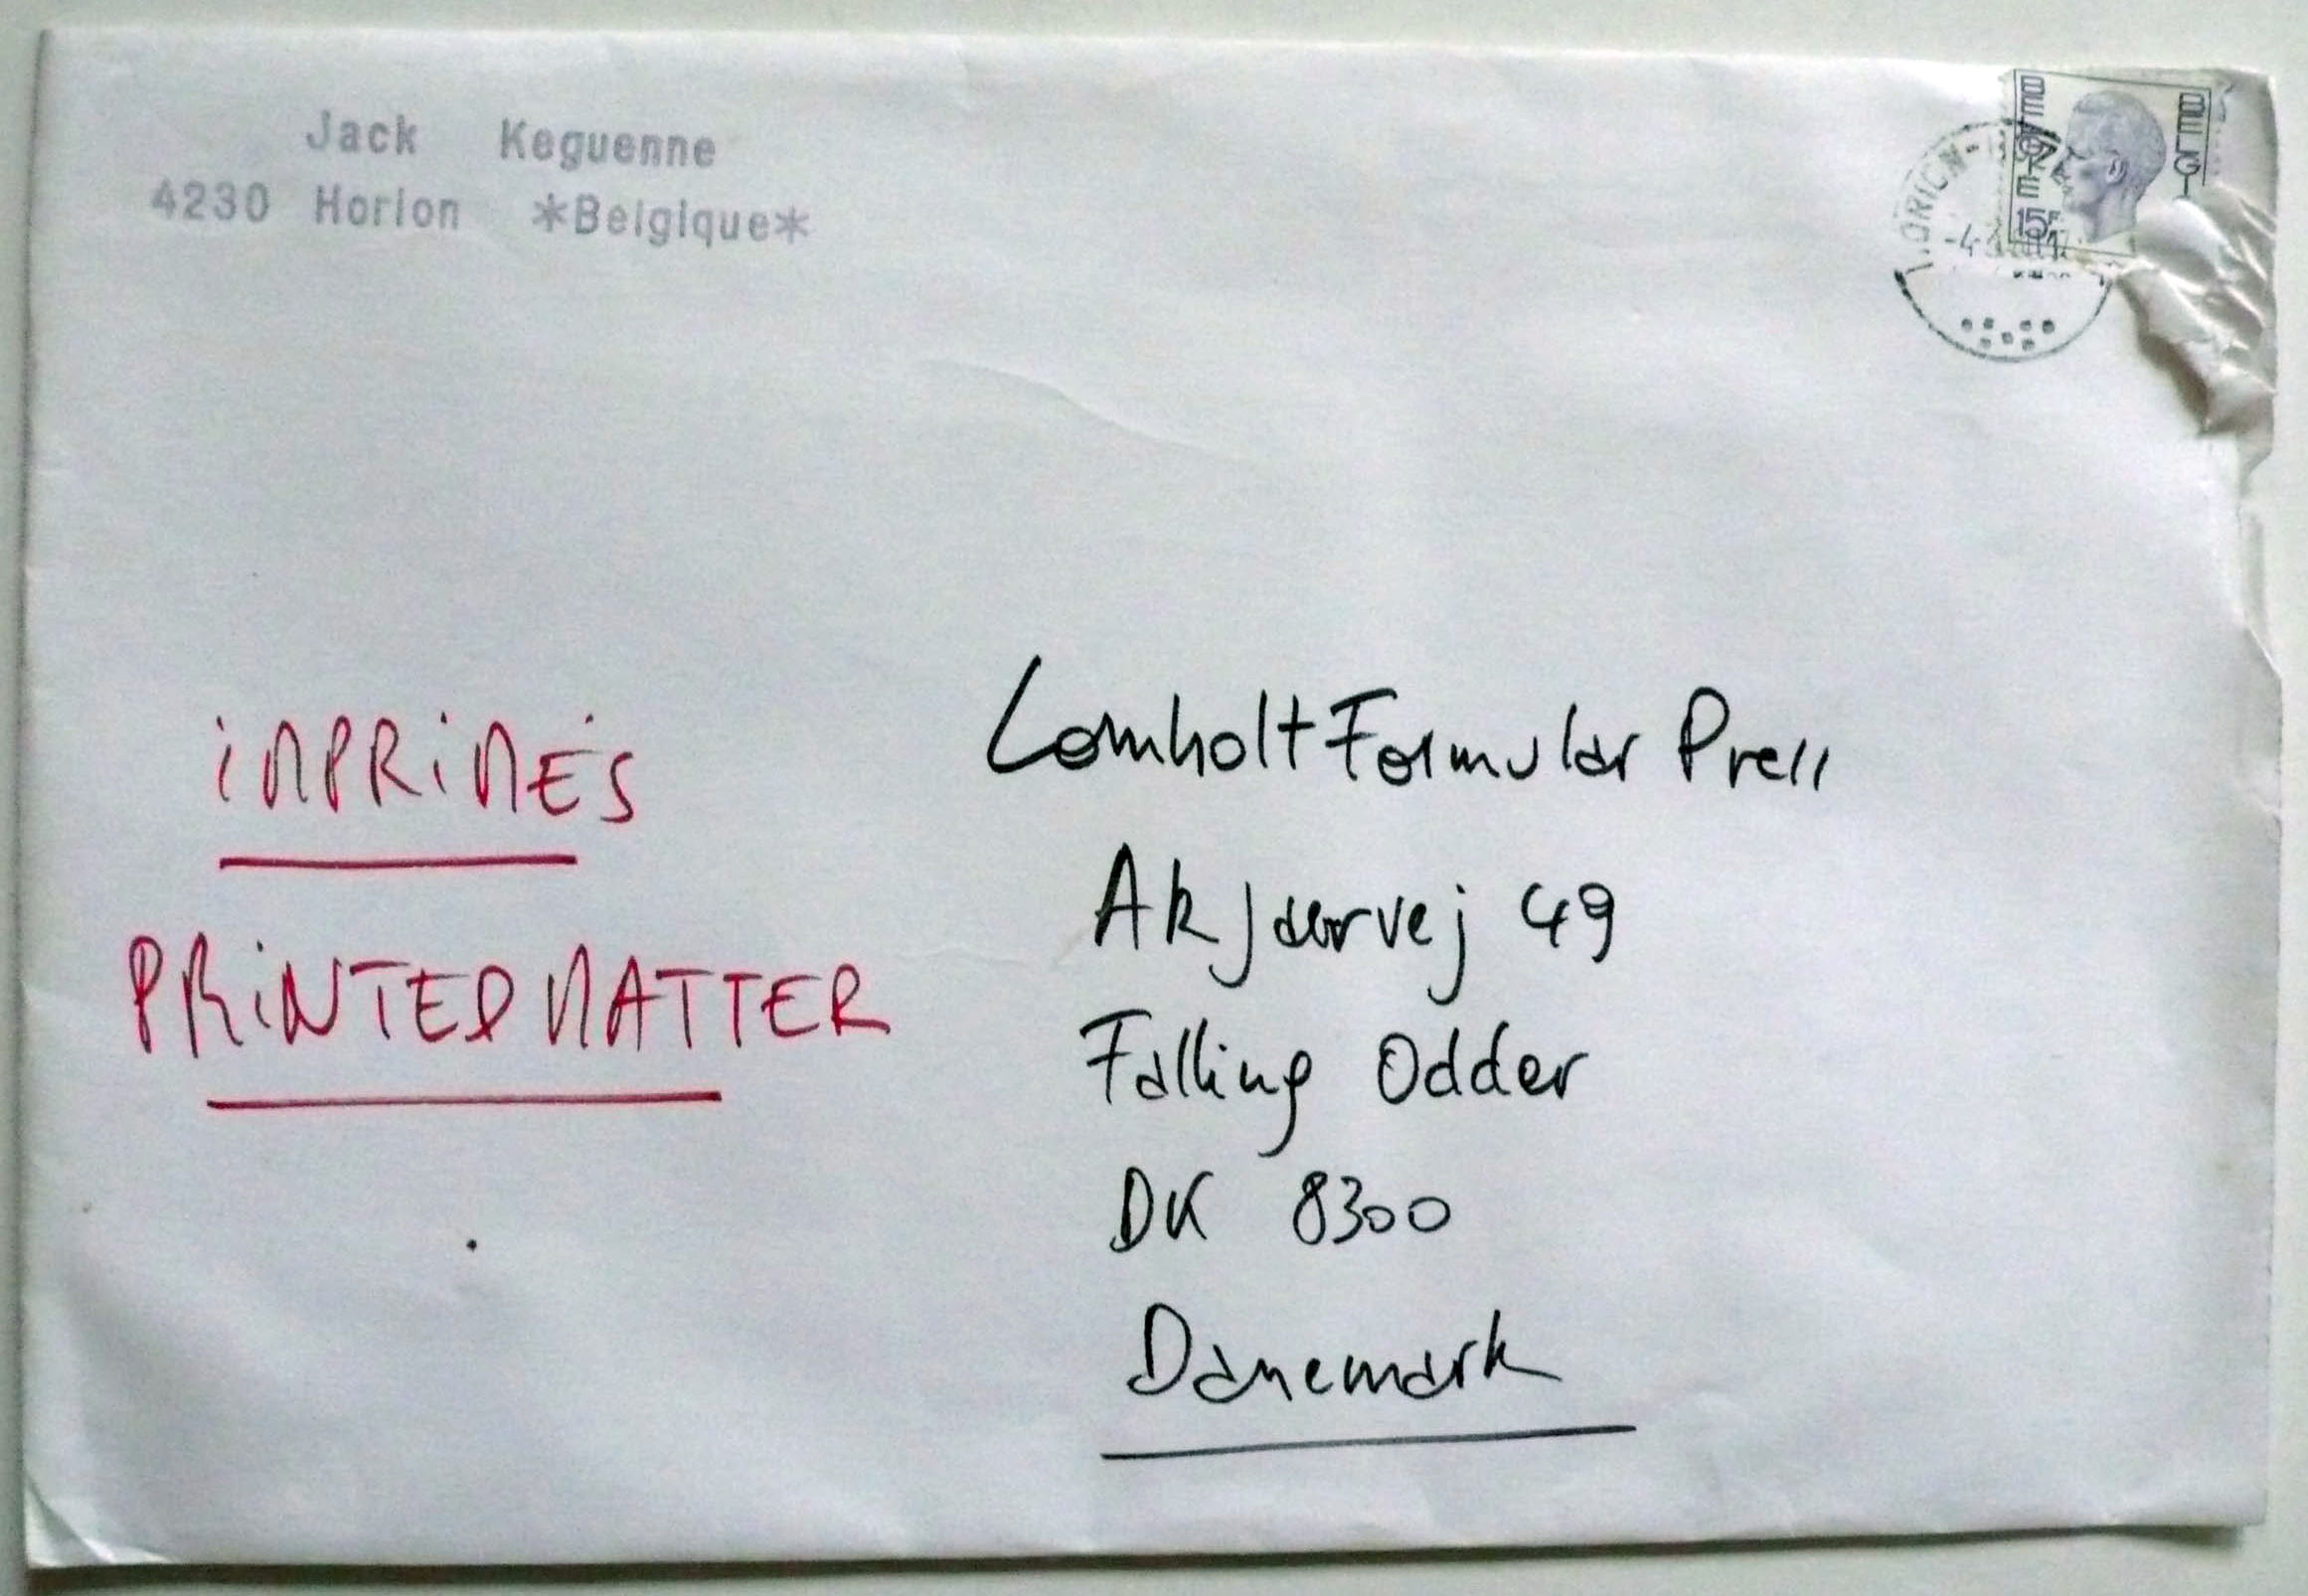 Jack Keguenne
4230 Horion *Belgique*
BELGIQUE
BELGI
15F
iMPRiMÉS
PRiNTED MATTER
Lomholt Formular Press
Akjaervej 49
Falling Odder
DK 8300
Danemark